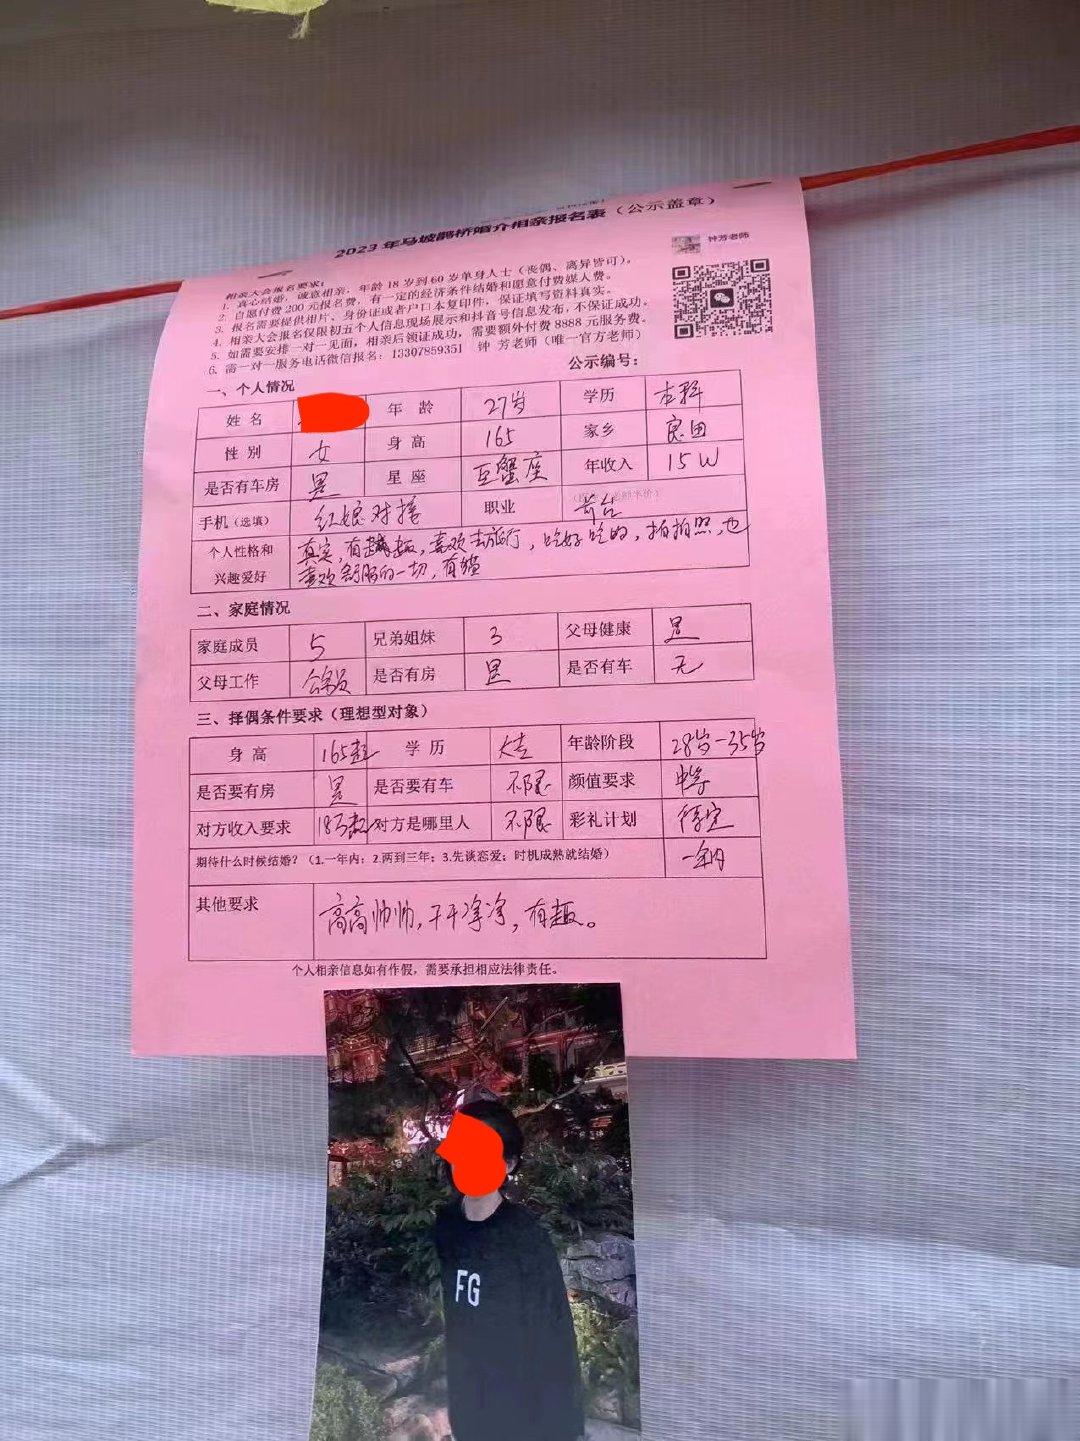 2023年马坡鹊桥婚介相亲报名表（公示盖章）
钟芳老师
相亲大会报名要求：
1. 真心结婚，诚意相亲，年龄18岁到60岁单身人士（丧偶、离异皆可）。
2. 自愿付费200元报名费，有一定的经济条件结婚和愿意付费媒人费。
3. 报名需要提供相片、身份证或者户口本复印件，保证填写资料真实。
4. 相亲大会报名仅限初五个人信息现场展示和抖音号信息发布，不保证成功。
5. 如需要安排一对一见面，相亲后领证成功，需要额外付费8888元服务费。
6. 需一对一服务电话微信报名：13307859351 钟 芳老师（唯一官方老师）
公示编号：
一、个人情况
姓 名 年 龄 27岁 学历 本科
性 别 女 身 高 165 家乡 良田
是否有车房 是 星 座 巨蟹座 年收入 15W
手机（选填） 红娘对接 职业
个人性格和兴趣爱好 真实，有趣，喜欢去旅行，吃好吃的，拍拍照，也
喜欢舒服的一切，有猫
二、家庭情况
家庭成员 5 兄弟姐妹 3 父母健康 是
父母工作 公务员 是否有房 是 是否有车 无
三、择偶条件要求（理想型对象）
身 高 165起 学 历 大专 年龄阶段 28岁-35岁
是否要有房 是 是否要有车 不限 颜值要求 中等
对方收入要求 18万起 对方是哪里人 不限 彩礼计划 待定
期待什么时候结婚？（1.一年内；2.两到三年；3.先谈恋爱；时机成熟就结婚） 一年内
其他要求 高高帅帅，干干净净，有趣。
个人相亲信息如有作假，需要承担相应法律责任。
FG